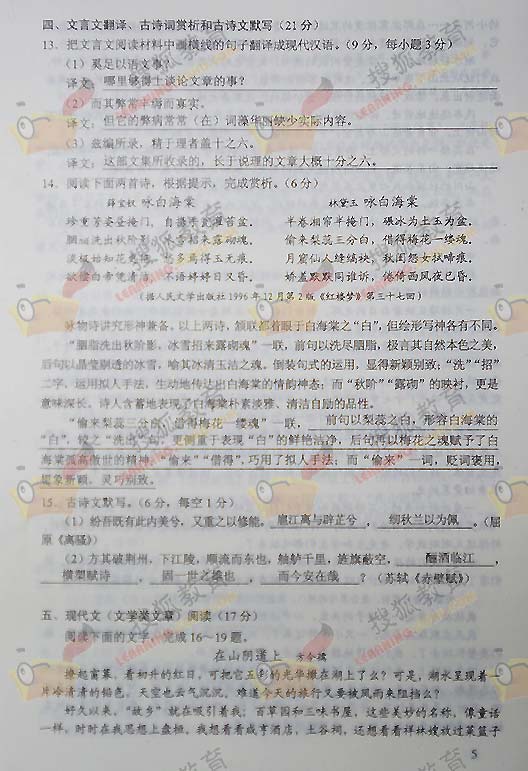 四、文言文翻译、古诗词赏析和古诗文默写(21分)
13. 把文言文阅读材料中画横线的句子翻译成现代汉语。(9分,每小题3分)
(1)奚足以语文事?
译文:哪里够得上谈论文章的事?
(2)而其弊常丰缛而寡实。
译文:但它的弊病常常(在)词藻华丽缺少实际内容。
(3)兹编所录,精于理者盖十之六。
译文:这部文集所收录的,长于说理的文章大概十分之六。
14. 阅读下面两首诗,根据提示,完成赏析。(6分)
薛宝钗 咏白海棠 林黛玉 咏白海棠
珍重芳姿昼掩门,自携手瓮灌苔盆。 半卷湘帘半掩门,碾冰为土玉为盆。
胭脂洗出秋阶影,冰雪招来露砌魂。 偷来梨蕊三分白,借得梅花一缕魂。
淡极始知花更艳,愁多焉得玉无痕。 月窟仙人缝缟袂,秋闺怨女拭啼痕。
欲偿白帝凭清洁,不语婷婷日又昏。 娇羞默默同谁诉,倦倚西风夜已昏。
(据人民文学出版社1996年12月第2版《红楼梦》第三十七回)
咏物诗讲究形神兼备。以上两诗,颔联都着眼于白海棠之“白”,但绘形写神各有不同。
“胭脂洗出秋阶影,冰雪招来露砌魂”一联,前句以洗尽胭脂,极言其自然本色之美,
后句以晶莹剔透的冰雪,喻其冰清玉洁之魂。倒装句式的运用,显得新颖别致;“洗”“招”
二字,运用拟人手法,生动地传达出白海棠的情韵神态;而“秋阶”“露砌”的映衬,更是
意味深长。诗人含蓄地表现了白海棠朴素淡雅、清洁自励的品性。
“偷来梨蕊三分白,借得梅花一缕魂”一联,前句以梨蕊之白,形容白海棠的
“白”,较之“洗出”句,更侧重于表现“白”的鲜艳洁净,后句再以梅花之魂赋予了白
海棠孤高傲世的精神,“偷来”“借得”,巧用了拟人手法;而“偷来”一词,贬词褒用,
想象新颖,灵巧别致。
15. 古诗文默写。(6分,每空1分)
(1)纷吾既有此内美兮,又重之以修能。扈江离与辟芷兮,纫秋兰以为佩。(屈
原《离骚》)
(2)方其破荆州,下江陵,顺流而东也,舳舻千里,旌旗蔽空,酾酒临江,
横槊赋诗,固一世之雄也,而今安在哉?(苏轼《赤壁赋》)
五、现代文(文学类文章)阅读(17分)
阅读下面的文字,完成16~19题。
在山阴道上 方令孺
撩起窗幕,看初升的红日,可把它五彩的光华撒在湖上了么?可是,湖水呈现着一
片冷清清的铅色,天空也云气沉沉,难道今天的旅行又要被风雨来阻挡么?
好久以来,“故乡”就在吸引着我:百草园和三味书屋,这些美妙的名称,像童话
一样,时时在我思想上盘桓。我想看看咸亨酒店,土谷祠,还想看看祥林嫂放过菜篮子
5
搜狐教育
LEARNING.SOHU.COM